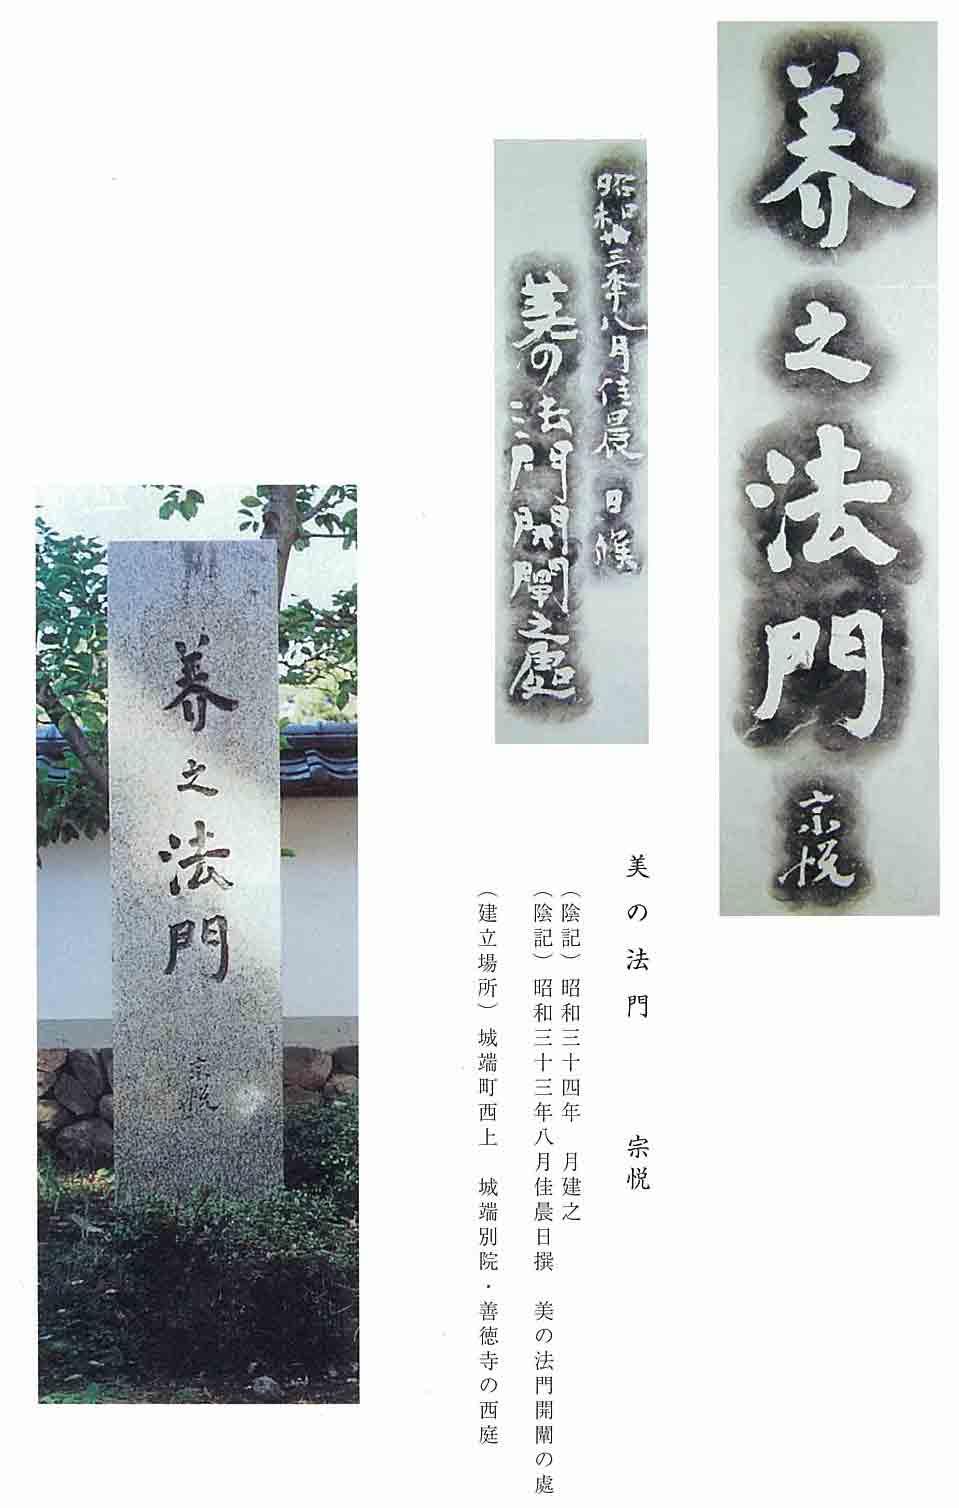 美之法門
宗悦
昭和廿三年八月佳晨日撰
美の法門開闡之處
美の法門　宗悦
（陰記）昭和三十四年　月建之
（陰記）昭和三十三年八月佳晨日撰　美の法門開闡の處
（建立場所）城端町西上　城端別院・善徳寺の西庭
美之法門
宗悦